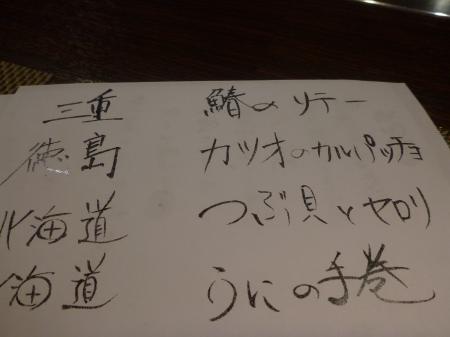 三重 鰆のソテー
徳島 カツオのカルパッチョ
北海道 つぶ貝とセロリ
海道 うにの手巻